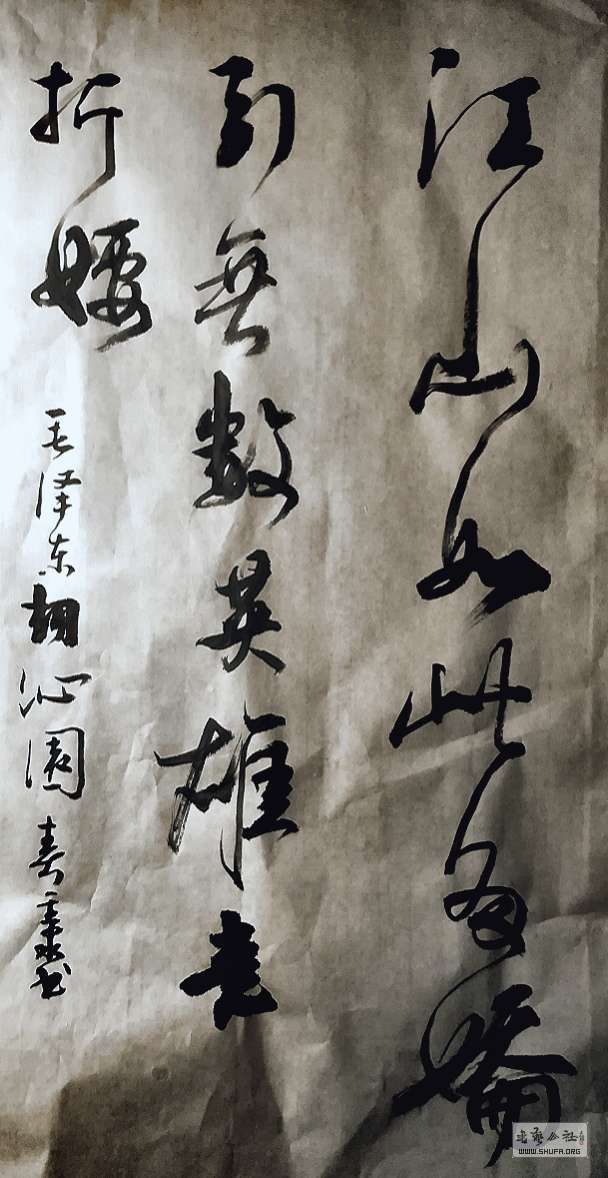 江山如此多嬌
引無數英雄竞
折腰
毛泽东词沁園春 书
書藝公社
WWW.SHUFA.ORG